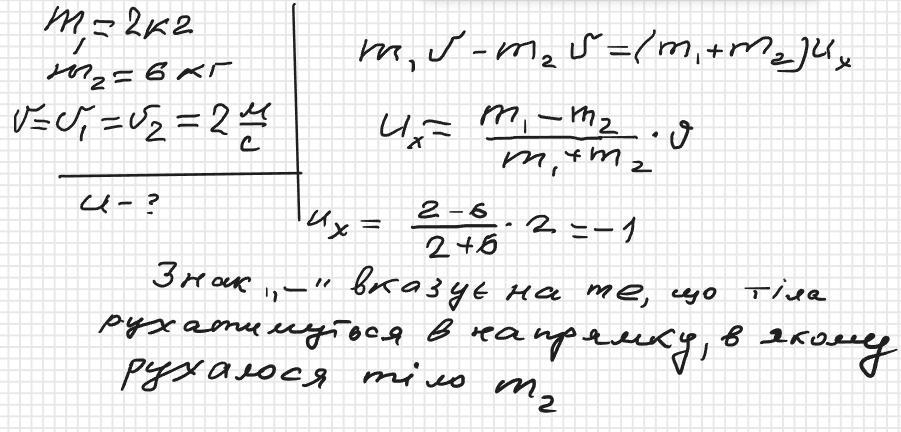 m₁ = 2кг
m₂ = 6 кг
v = v₁ = v₂ = 2 м/с
u - ?
m₁v - m₂v = (m₁ + m₂)uₓ
uₓ = (m₁ - m₂)/(m₁ + m₂) · v
uₓ = (2 - 6)/(2 + 6) · 2 = -1
Знак „-" вказує на те, що тіла
рухатимуться в напрямку, в якому
рухалося тіло m₂